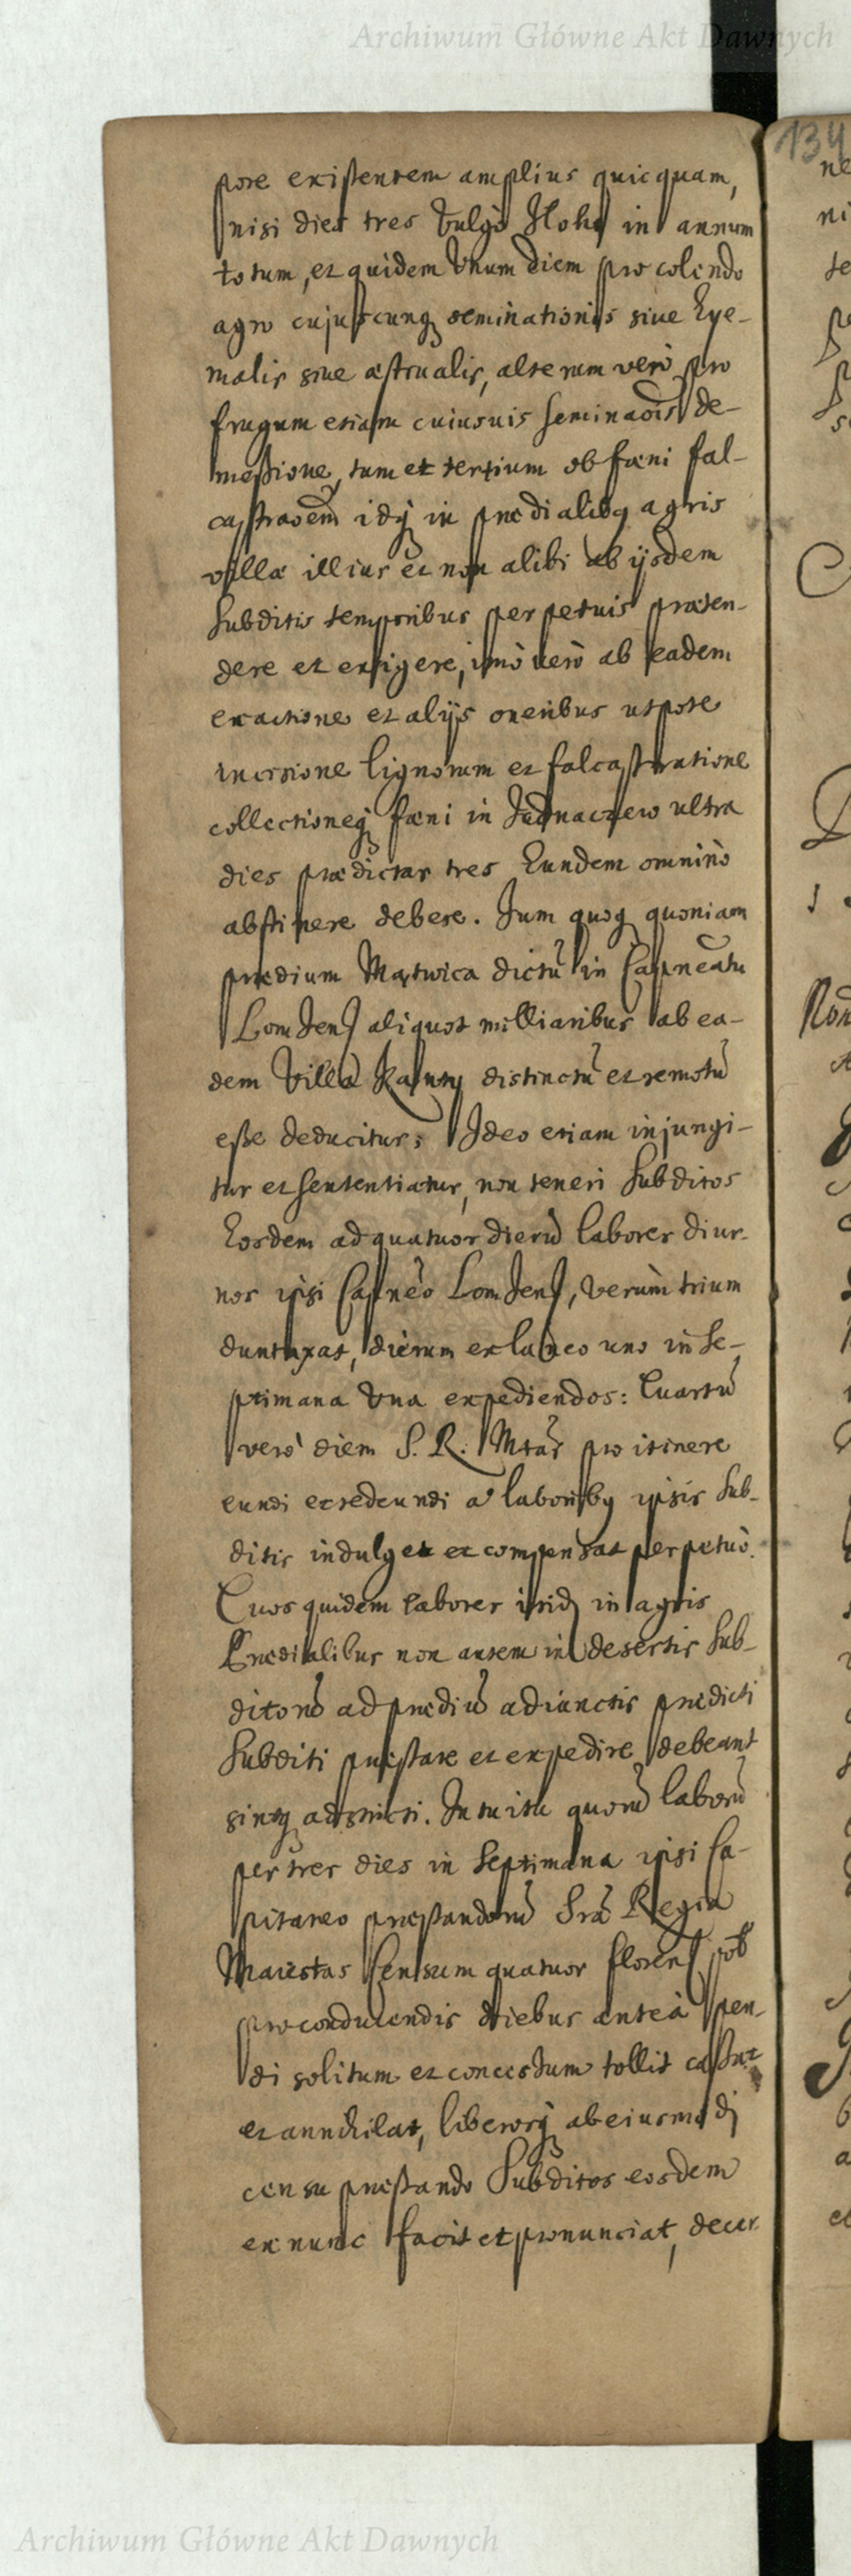 Archiwum Główne Akt Dawnych
134
pore existentem amplius quicquam,
nisi dies tres vulgò Tłoki in annum
totum, et quidem unum diem pro colendo
agro cujuscunq seminationis siue Hye-
malis siue æstiualis, alterum verò pro
frugum etiam cuiusuis seminaōis de-
messione, tum et tertium ob fæni fal-
castraōem idq in prædialibq agris
villæ illius et non alibi ab ijsdem
subditis temporibus perpetuis præten-
dere et exigere, imò verò ab eadem
exactione et alijs oneribus utpote
incisione lignorum et falcastratione
collectioneq fæni in ultra
dies prædictas tres Eundem omninò
abstinere debere. Tum quoq quoniam
prædium Mątwica dictū in Capneātu
Lomzen aliquot milliaribus ab ea-
dem Villa distinctū et remotū
esse deducitur; Ideo etiam injungi-
tur et sententiatur, non teneri subditos
Eosdem ad quatuor dierū labores diur-
nos ipsi Capneo Lomzen, verùm trium
duntaxat, dierum ex laneo uno in se-
ptimana una expediendos: Quartū
verò diem S. R. Mtās pro itinere
eundi et redeundi a laboribq ipsis sub-
ditis indulget et compensat perpetuò.
Quos quidem labores in agris
Prædialibus non autem in desertis sub-
ditorū ad prædiū adiunctis prædicti
subditi præstare et expedire debeant
sintq adstricti. Intuitu quorū laborū
per tres dies in septimana ipsi Ca-
pitaneo præstandorū Sra Regia
Maiestas Censum quatuor floren
pro conducendis diebus anteà pen-
di solitum et concessum tollit cassat
et annihilat, liberosq ab eiusmodi
censu præstando Subditos eosdem
ex nunc facit et pronunciat, decer
Archiwum Główne Akt Dawnych